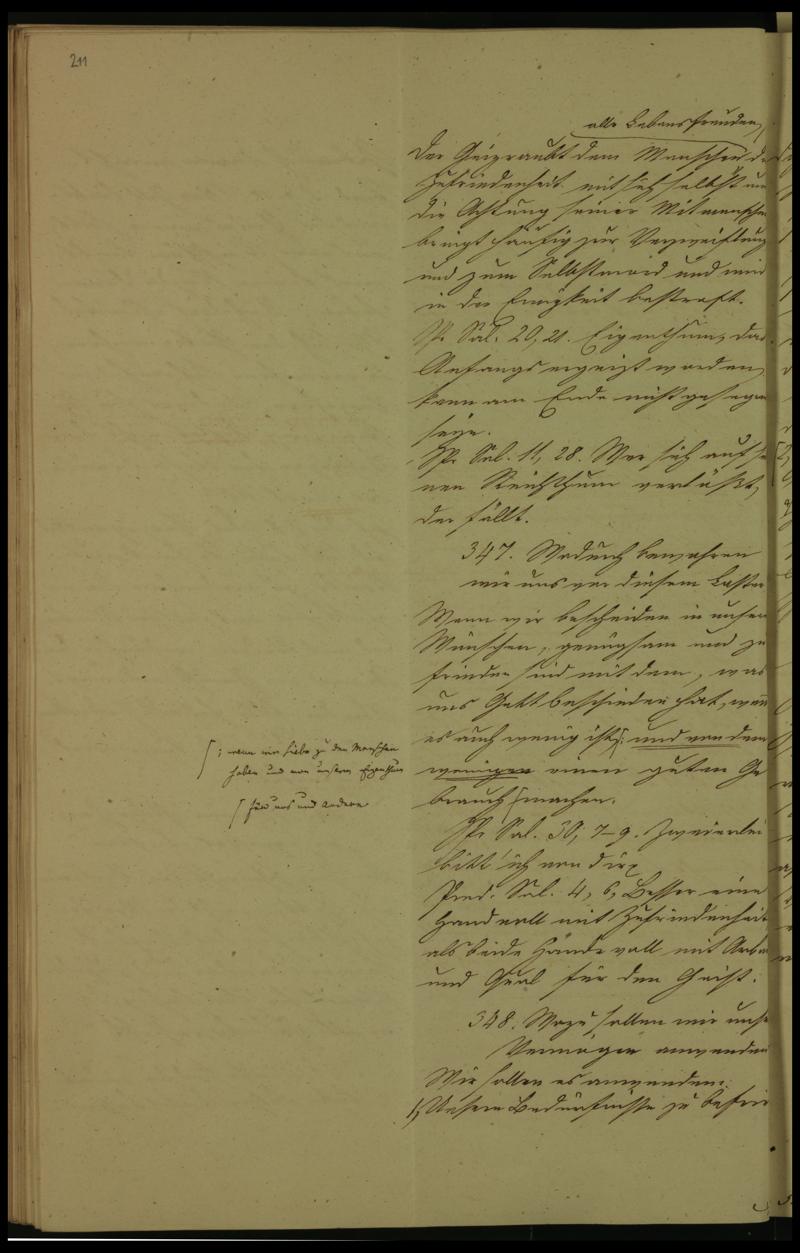 211
alle Lebensfreuden,
Der Geiz raubt dem Menschen d
Zufriedenheit mit sich selbst un
die Achtung seiner Mitmensche
bringt häufig zur Verzweiflung
und zum Selbstmord und wird
in der Ewigkeit bestraft.
Spr. Sal. 20, 21. Eigenthum, das
Anfangs ergeizt worden,
kann am Ende nicht gesegn
seyn.
Spr. Sal. 11, 28. Wer sich auf se
nen Reichthum verläßt,
der fällt.
347. Wodurch bewahren
wir uns vor diesem Laster
Wenn wir bescheiden in unsern
Wünschen, genügsam und zu
frieden sind mit dem, was
uns Gott beschieden hat, wenn
es auch wenig ist; und von dem
; wenn wir Liebe zu den Menschen
haben und von unserm Eigenthum
wenigen einen guten Ge
brauch machen.
für uns und andere
Spr. Sal. 30, 7-9. Zweierlei
bitt' ich von dir
Pred. Sal. 4, 6, Besser eine
Handvoll mit Zufriedenheit
als beide Hände voll mit Arbe
und Qual für den Geist.
348. Wozu sollen wir unse
Vermögen anwenden
Wir sollen es anwenden:
1, Unsere Bedürfnisse zu befrie